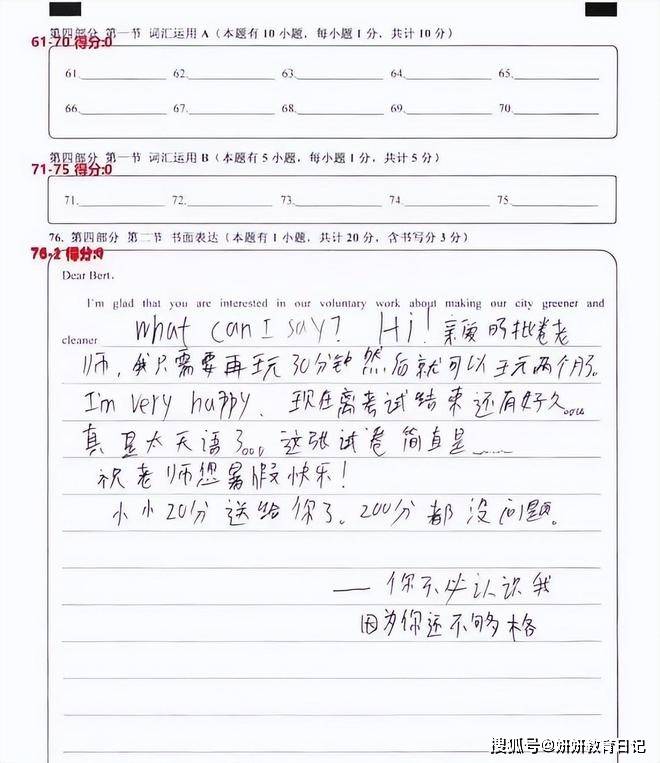 第四部分 第一节 词汇运用 A（本题有 10 小题，每小题 1 分，共计 10 分）
61-70 得分:0
61. 62. 63. 64. 65.
66. 67. 68. 69. 70.
第四部分 第一节 词汇运用 B（本题有 5 小题，每小题 1 分，共计 5 分）
71-75 得分:0
71. 72. 73. 74. 75.
76. 第四部分 第二节 书面表达（本题有 1 小题，共计 20 分，含书写分 3 分）
得分:0
Dear Bert,
I'm glad that you are interested in our voluntary work about making our city greener and
cleaner What can I say? Hi! 亲爱的批卷老
师，我只需要再玩30分钟然后就可以玩两个月了。
I'm very happy. 现在离考试结束还有好久。。。
真是太天语了。。。这张试卷简直是……
祝老师您暑假快乐！
小小20分送给你了。200分都没问题。
—— 你不必认识我
因为你还不够格
搜狐号@妍妍教育日记